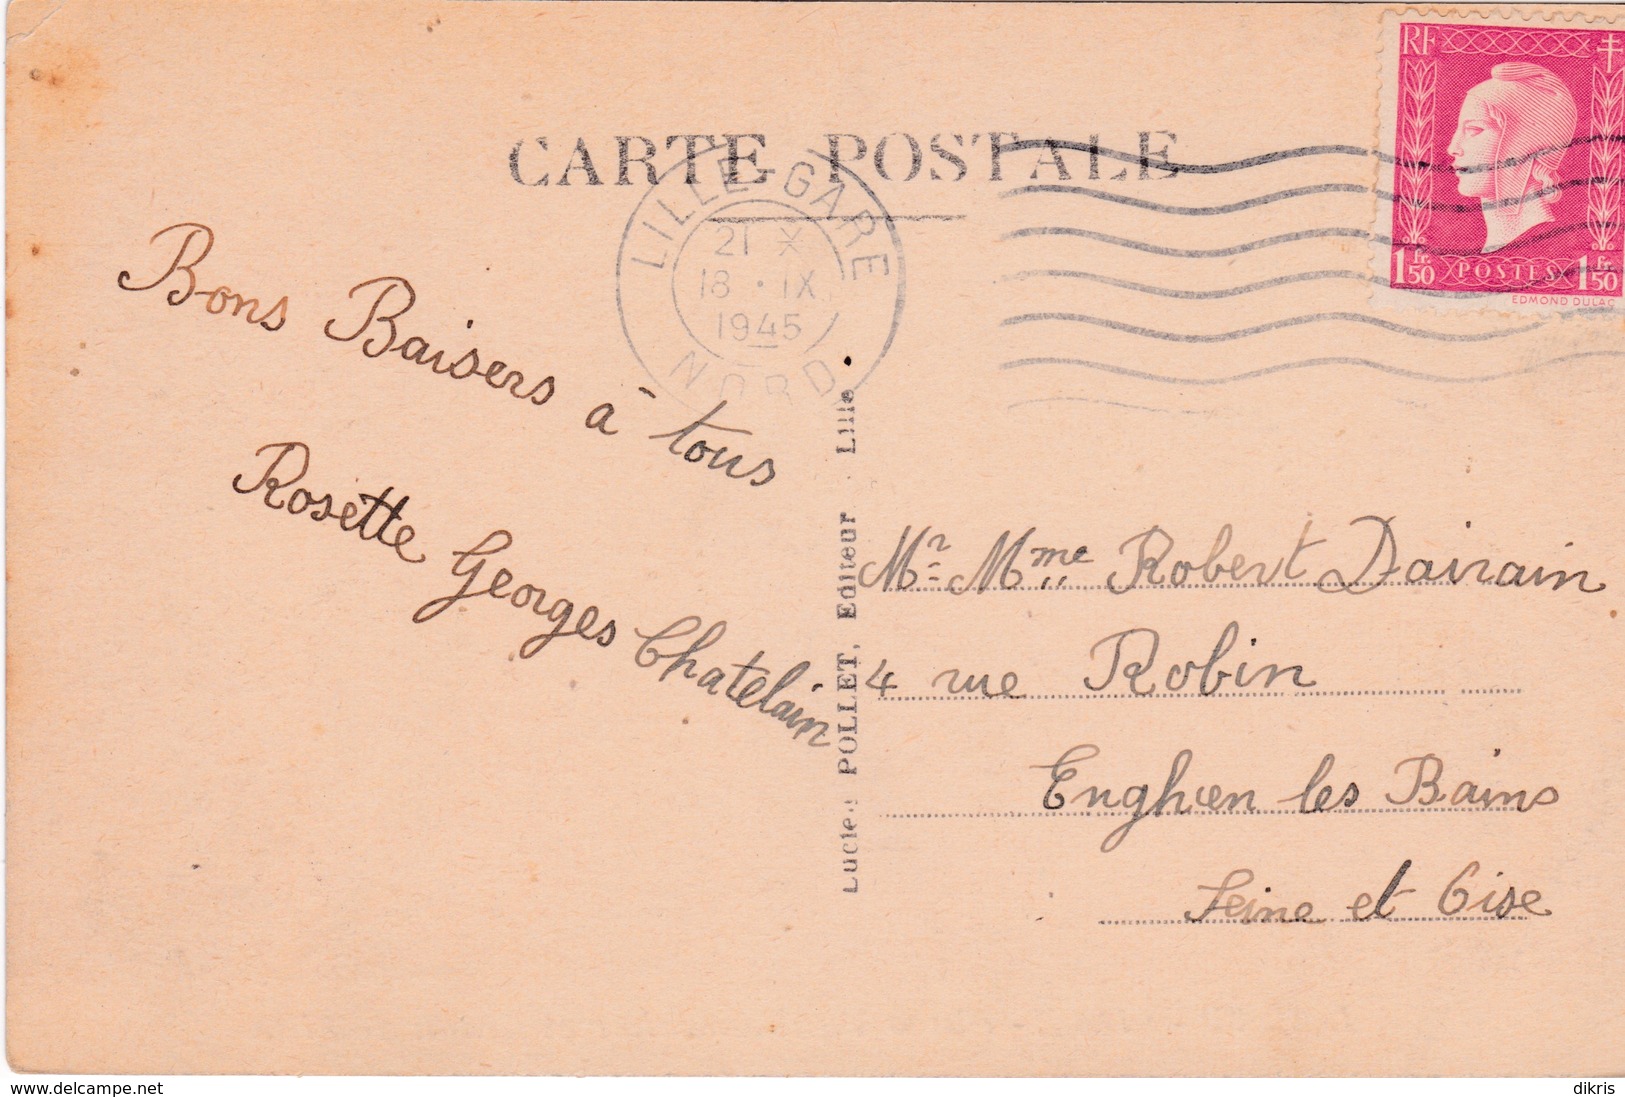 CARTE POSTALE
RF
1 Fr. 50 POSTES 1 Fr. 50
EDMOND DULAC
LILLE-GARE
21 X
18 • IX
1945
NORD
Bons Baisers à tous
Rosette Georges Chatelain
Lucien POLLET, Editeur Lille
Mr Mme Robert Dairain
4 rue Robin
Enghien les Bains
Seine et Oise
www.delcampe.net
dikris